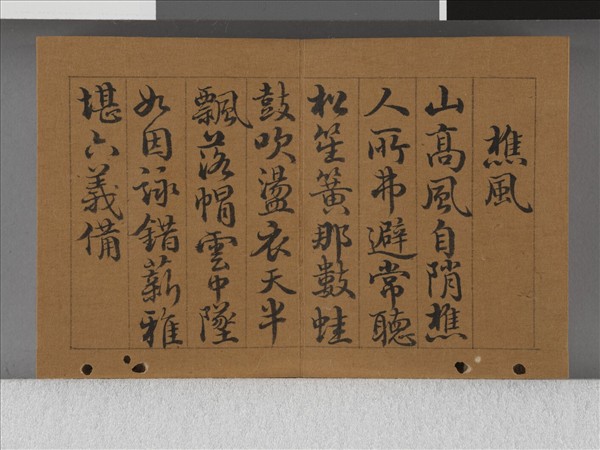 樵風
山高風自陗樵
人所弗避常聽
松笙簧那數蛙
鼓吹盪衣天半
飄落帽雲中墜
如因詠錯薪雅
堪六義備